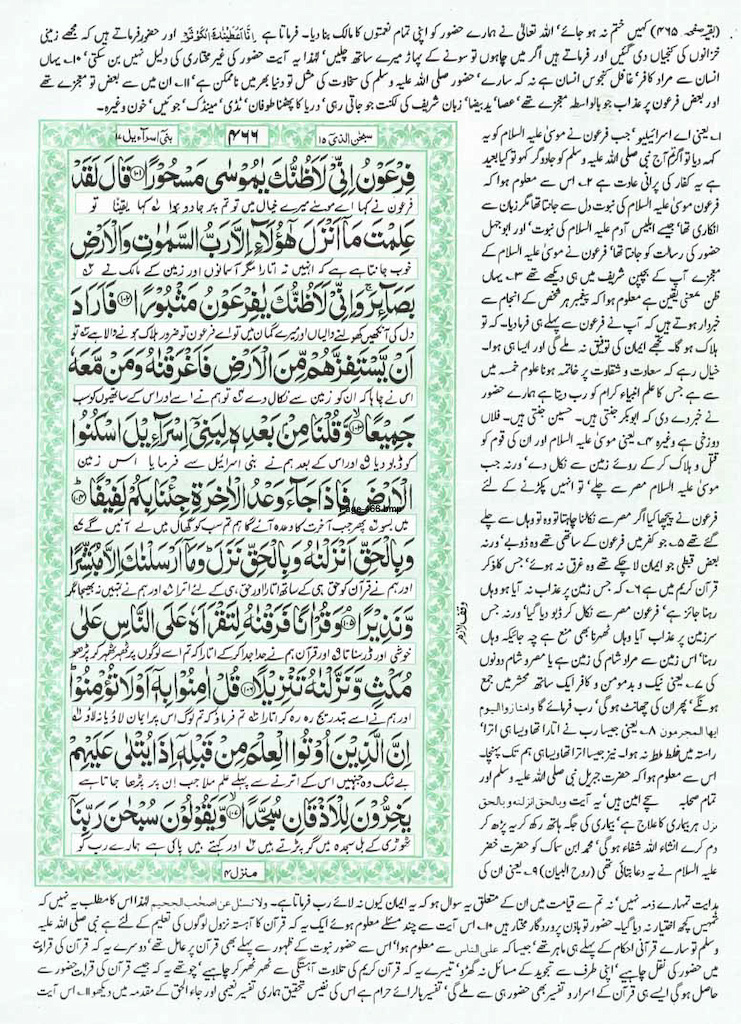 (بقیہ صفحہ ۴۶۵) کہیں ختم نہ ہو جائے' اللہ تعالیٰ نے ہمارے حضور کو اپنی تمام نعمتوں کا مالک بنا دیا۔ فرماتا ہے اِنَّا اَعْطَیْنٰكَ الْكَوْثَرَ اور حضور فرماتے ہیں کہ مجھے زمینی
خزانوں کی کنجیاں دی گئیں اور فرماتے ہیں اگر میں چاہوں تو سونے کے پہاڑ میرے ساتھ چلیں' لہٰذا یہ آیت حضور کی غیر مختاری کی دلیل نہیں بن سکتی' ۱۰۔ یہاں
انسان سے مراد کافر' غافل کنجوس انسان ہے نہ کہ سارے' حضور صلی اللہ علیہ وسلم کی سخاوت کی مثل تو دنیا بھر میں ناممکن ہے' ۱۱۔ ان میں سے بعض تو معجزے تھے
اور بعض فرعون پر عذاب جو بالواسطہ معجزے تھے' عصا' ید بیضا' زبان شریف کی لکنت جو جاتی رہی' دریا کا پھٹنا طوفان' ٹڈی' مینڈک' جوئیں' خون وغیرہ۔
سبحٰن الذیٓ ۱۵
۴۶۶
بنیٓ اسرآءیل ۱۷
فِرْعَوْنُ اِنِّیْ لَاَظُنُّكَ یٰمُوْسٰى مَسْحُوْرًا ۱۰۱ قَالَ لَقَدْ
فرعون نے کہا اے موسٰے میرے خیال میں تو تم پر جادو ہوا کہا یقینًا تو
عَلِمْتَ مَاۤ اَنْزَلَ هٰۤؤُلَآءِ اِلَّا رَبُّ السَّمٰوٰتِ وَالْاَرْضِ
خوب جانتا ہے کہ انہیں نہ اتارا مگر آسمانوں اور زمین کے مالک نے
بَصَآىِٕرَ ۚ وَاِنِّیْ لَاَظُنُّكَ یٰفِرْعَوْنُ مَثْبُوْرًا ۱۰۲ فَاَرَادَ
دل کی آنکھیں کھولنے والیاں اور میرے گمان میں تو اے فرعون تو ضرور ہلاک ہونے والا ہے تو
اَنْ یَّسْتَفِزَّهُمْ مِّنَ الْاَرْضِ فَاَغْرَقْنٰهُ وَمَنْ مَّعَهٗ
اس نے چاہا کہ ان کو زمین سے نکال دے تو ہم نے اسے اور اس کے ساتھیوں کو سب
جَمِیْعًا ۱۰۳ وَّقُلْنَا مِنْۢ بَعْدِهٖ لِبَنِیْۤ اِسْرَآءِیْلَ اسْكُنُوا
کو ڈبو دیا اور اس کے بعد ہم نے بنی اسرائیل سے فرمایا اس زمین
الْاَرْضَ فَاِذَا جَآءَ وَعْدُ الْاٰخِرَةِ جِئْنَا بِكُمْ لَفِیْفًا ۱۰۴
Page-466.bmp
میں بسو پھر جب آخرت کا وعدہ آئے گا ہم تم سب کو گھال میل لے آئیں گے
وَبِالْحَقِّ اَنْزَلْنٰهُ وَبِالْحَقِّ نَزَلَ ؕ وَمَاۤ اَرْسَلْنٰكَ اِلَّا مُبَشِّرًا
اور ہم نے قرآن کو حق ہی کے ساتھ اتارا اور حق ہی کے لئے اترا اور ہم نے تمہیں نہ بھیجا مگر
وَّنَذِیْرًا ۱۰۵ وَقُرْاٰنًا فَرَقْنٰهُ لِتَقْرَاَهٗ عَلَى النَّاسِ عَلٰى
خوشی اور ڈر سناتا اور قرآن ہم نے جدا جدا کر کے اتارا کہ تم اسے لوگوں پر ٹھہر ٹھہر کر پڑھو
مُكْثٍ وَّنَزَّلْنٰهُ تَنْزِیْلًا ۱۰۶ قُلْ اٰمِنُوْا بِهٖۤ اَوْ لَا تُؤْمِنُوْا
اور ہم نے اسے بتدریج رہ رہ کر اتارا تم فرماؤ کہ تم لوگ اس پر ایمان لاؤ یا نہ لاؤ
اِنَّ الَّذِیْنَ اُوْتُوا الْعِلْمَ مِنْ قَبْلِهٖۤ اِذَا یُتْلٰى عَلَیْهِمْ
بے شک وہ جنہیں اس کے اترنے سے پہلے علم ملا جب ان پر پڑھا جاتا ہے
یَخِرُّوْنَ لِلْاَذْقَانِ سُجَّدًا ۱۰۷ وَّیَقُوْلُوْنَ سُبْحٰنَ رَبِّنَاۤ
ٹھوڑی کے بل سجدہ میں گر پڑتے ہیں اور کہتے ہیں پاکی ہے ہمارے رب کو
منزل ۴
وقف لازم
۱۔ یعنی اے اسرائیلیو' جب فرعون نے موسیٰ علیہ السلام کو یہ
کہہ دیا تو اگر تم آج نبی صلی اللہ علیہ وسلم کو جادوگر کہو تو کیا بعید
ہے یہ کفار کی پرانی عادت ہے ۲۔ اس سے معلوم ہوا کہ
فرعون موسیٰ علیہ السلام کی نبوت دل سے جانتا تھا مگر زبان سے
انکاری تھا' جیسے ابلیس آدم علیہ السلام کی نبوت' اور ابوجہل
حضور کی رسالت کو جانتا تھا' فرعون نے موسیٰ علیہ السلام کے
معجزے آپ کے بچپن شریف میں ہی دیکھے تھے ۳۔ یہاں
ظن بمعنی یقین ہے معلوم ہوا کہ پیغمبر ہر شخص کے انجام سے
خبردار ہوتے ہیں کہ آپ نے فرعون سے پہلے ہی فرما دیا۔ کہ تو
ہلاک ہو گا۔ تجھے ایمان کی توفیق نہ ملے گی اور ایسا ہی ہوا۔
خیال رہے کہ سعادت و شقاوت پر خاتمہ ہونا علوم خمسہ میں
سے ہے جس کا علم انبیاء کرام کو رب دیتا ہے ہمارے حضور
نے خبر دے دی کہ ابوبکر جنتی ہیں۔ حسین جنتی ہیں۔ فلاں
دوزخی ہے وغیرہ ۴۔ یعنی موسیٰ علیہ السلام اور ان کی قوم کو
قتل و ہلاک کر کے روئے زمین سے نکال دے' ورنہ جب
موسیٰ علیہ السلام مصر سے چلے' تو انہیں پکڑنے کے لئے
فرعون نے پیچھا کیا اگر مصر سے نکالنا چاہتا تو وہ تو وہاں سے چلے
گئے تھے ۵۔ جو کفر میں فرعون کے ساتھی تھے وہ ڈوبے' ورنہ
بعض قبطی جو ایمان لا چکے تھے وہ غرق نہ ہوئے' جس کا ذکر
قرآن کریم میں ہے ۶۔ کہ جس زمین پر عذاب نہ آیا ہو وہاں
رہنا جائز ہے' فرعون مصر سے نکال کر ڈبو دیا گیا' ورنہ جس
سرزمین پر عذاب آیا وہاں ٹھہرنا بھی منع ہے چہ جائیکہ وہاں
رہنا' اس زمین سے مراد شام کی زمین ہے یا مصر و شام دونوں
کی ۷۔ یعنی نیک و بد مومن و کافر ایک ساتھ محشر میں جمع
ہونگے' پھر ان کی چھانٹ ہو گی' رب فرمائے گا وامتازوا الیوم
ایها المجرمون ۸۔ یعنی جیسا رب نے اتارا تھا ویسا ہی اترا'
راستہ میں خلط ملط نہ ہوا۔ نیز جیسا اترا تھا ویسا ہی ہم تک پہنچا۔
اس سے معلوم ہوا کہ حضرت جبریل نبی صلی اللہ علیہ وسلم اور
تمام صحابہ سچے امین ہیں' یہ آیت وبالحق انزلنٰه وبالحق
نزل ہر بیماری کا علاج ہے' بیماری کی جگہ ہاتھ رکھ کر یہ پڑھ کر
دم کرے انشاء اللہ شفاء ہو گی' محمد ابن سماک کو حضرت خضر
علیہ السلام نے یہ دعا بتائی تھی (روح البیان) ۹۔ یعنی ان کی
ہدایت تمہارے ذمہ نہیں' نہ تم سے قیامت میں ان کے متعلق یہ سوال ہو کہ یہ ایمان کیوں نہ لائے رب فرماتا ہے۔ ولا تسئل عن اصحٰب الجحیم لہٰذا اس کا مطلب یہ نہیں کہ
تمہیں کچھ اختیار نہ دیا گیا۔ حضور تو باذن پروردگار مختار ہیں ۱۰۔ اس آیت سے چند مسئلے معلوم ہوئے ایک یہ کہ قرآن کا آہستہ نزول لوگوں کی تعلیم کے لئے ہے نبی صلی اللہ علیہ
وسلم تو سارے قرآنی احکام کے پہلے ہی ماہر تھے' جیسا کہ علی الناس سے معلوم ہوا' اس سے حضور نبوت کے ظہور سے پہلے بھی قرآن پر عامل تھے' دوسرے یہ کہ قرآن کی قرأت
میں حضور کی نقل چاہیے' اپنی طرف سے تجوید کے مسائل نہ گھڑو' تیسرے یہ کہ قرآن کریم کی تلاوت آہستگی سے ٹھہر ٹھہر کر چاہیے' چوتھے یہ کہ جیسے قرآن کی قرأت حضور سے
حاصل ہو گی ایسے ہی قرآن کے اسرار و تفسیر بھی حضور ہی سے ملے گی' تفسیر بالرائے حرام ہے اس کی نفیس تحقیق ہماری تفسیر نعیمی اور جاء الحق کے مقدمہ میں دیکھو ۱۱۔ اس آیت